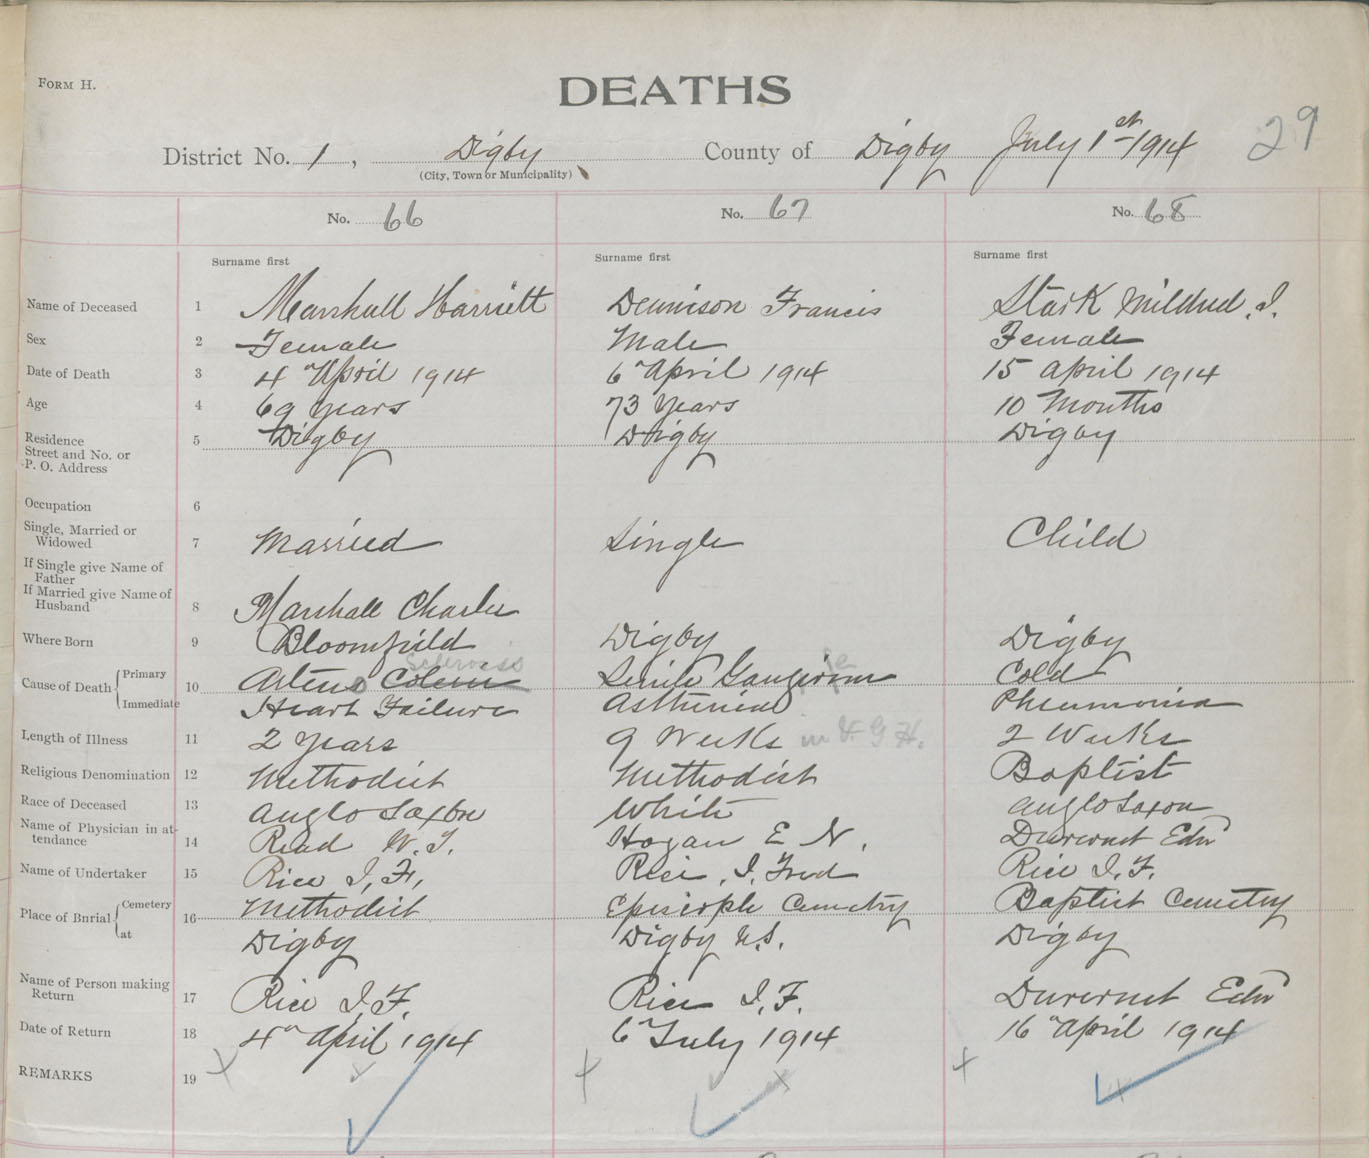 FORM H.
DEATHS
District No. 1, Digby County of Digby July 1st 1914 29
(City, Town or Municipality)
No. 66 No. 67 No. 68
Surname first Surname first Surname first
Name of Deceased 1 Marshall Harriett Dennison Francis Stark Mildred. I.
Sex 2 Female Male Female
Date of Death 3 4th April 1914 6th April 1914 15 April 1914
Age 4 69 Years 73 Years 10 Months
Residence Street and No. or P. O. Address 5 Digby Digby Digby
Occupation 6
Single, Married or Widowed 7 Married Single Child
If Single give Name of Father
If Married give Name of Husband 8 Marshall Charles
Where Born 9 Bloomfield Digby Digby
sclerosis
Cause of Death { Primary 10 Arterio Senile Cold
Immediate Heart Failure Pheumonia
Length of Illness 11 2 Years 9 Weeks in V. G H. 2 Weeks
Religious Denomination 12 Methodist Methodist Baptist
Race of Deceased 13 Anglo Saxon White Anglo Saxon
Name of Physician in attendance 14 Read W. Hogan E N. Duvernet Edw
Name of Undertaker 15 Rice I, F, Rice, I, Fred Rice I. F.
Place of Burial { Cemetery 16 Methodist Episcople Cemetry Baptist Cemetry
at Digby Digby N.S. Digby
Name of Person making Return 17 Rice I, F. Rice I, F. Duvernet Edw
Date of Return 18 4th April 1914 6th July 1914 16th April 1914
REMARKS 19